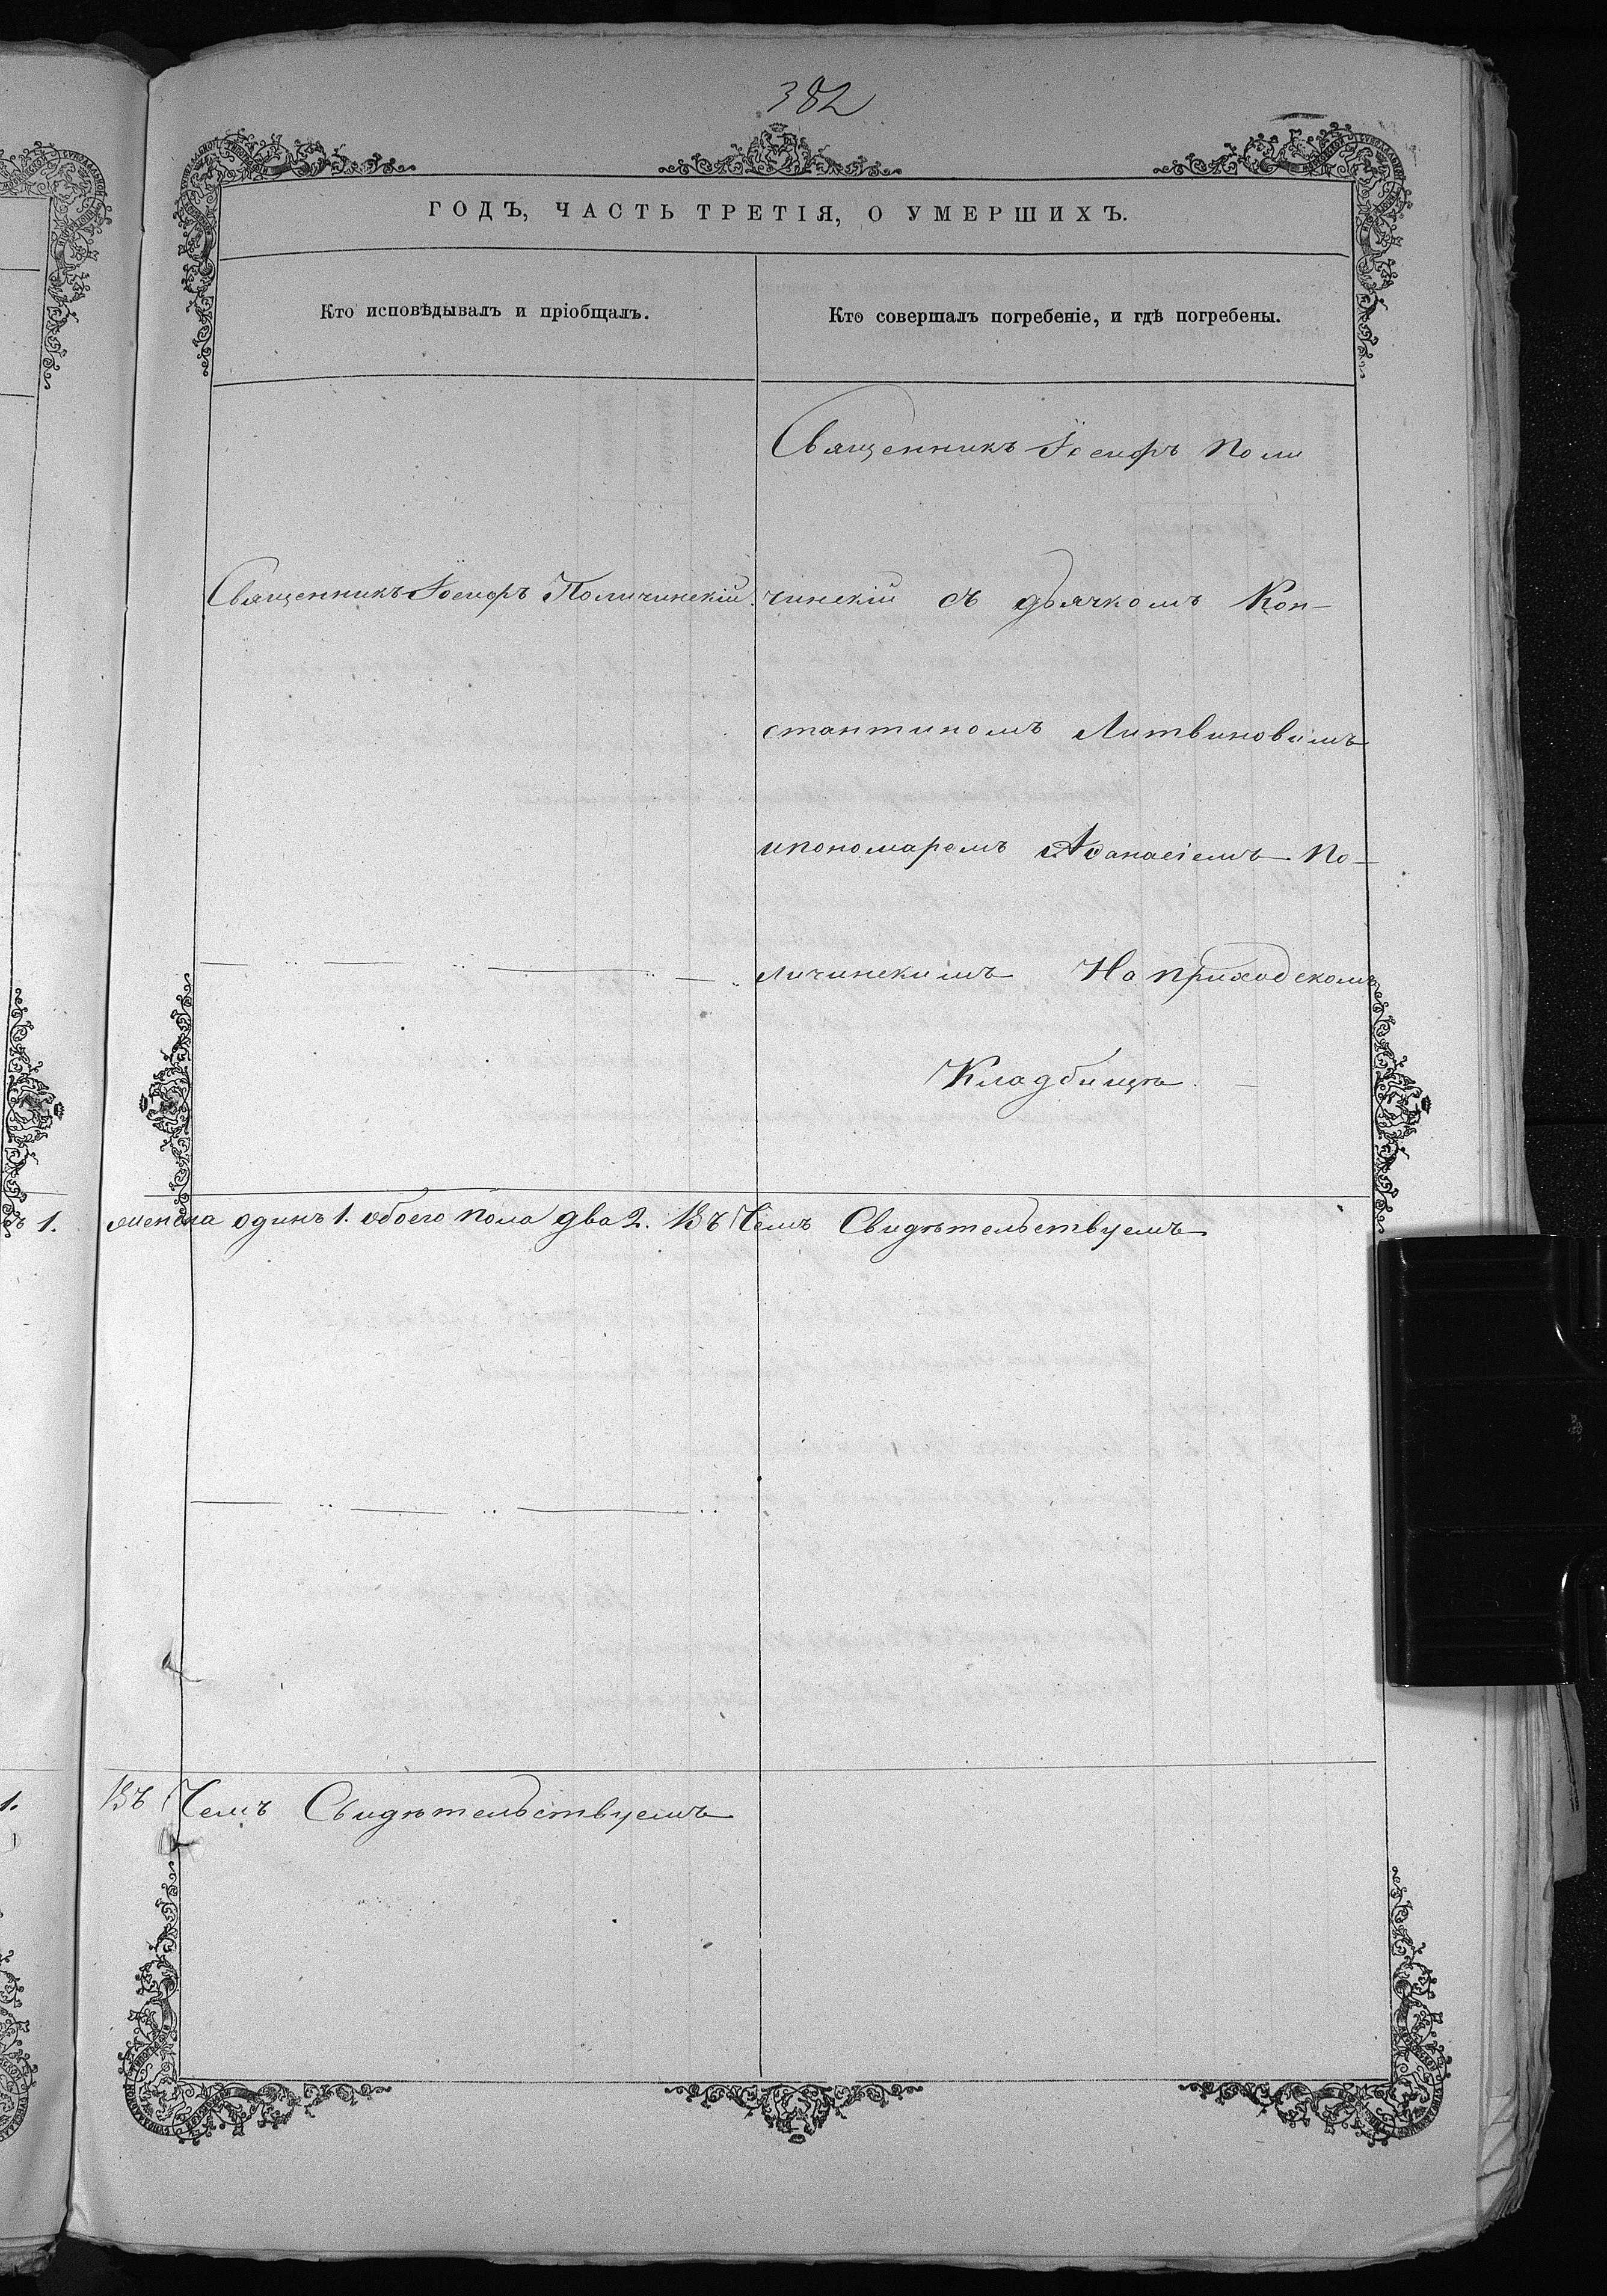 382
ГОДЪ, ЧАСТЬ ТРЕТІЯ, О УМЕРШИХЪ.
Кто исповѣдывалъ и пріобщалъ.
Кто совершалъ погребеніе, и гдѣ погребены.
Священникъ Іосифъ Поличинскій.
Священникъ Іосифъ Поли
чинскій съ дьячкомъ Кон-
стантиномъ Литвиновимъ
ипономаремъ Аѳанасіемъ По-
личинскимъ На приходскомъ
Кладбищѣ.
ъ 1. женска одинъ 1. обоего пола два 2. Въ Чемъ Свидѣтельствуемъ
1. Въ Чемъ Свидѣтельствуемъ